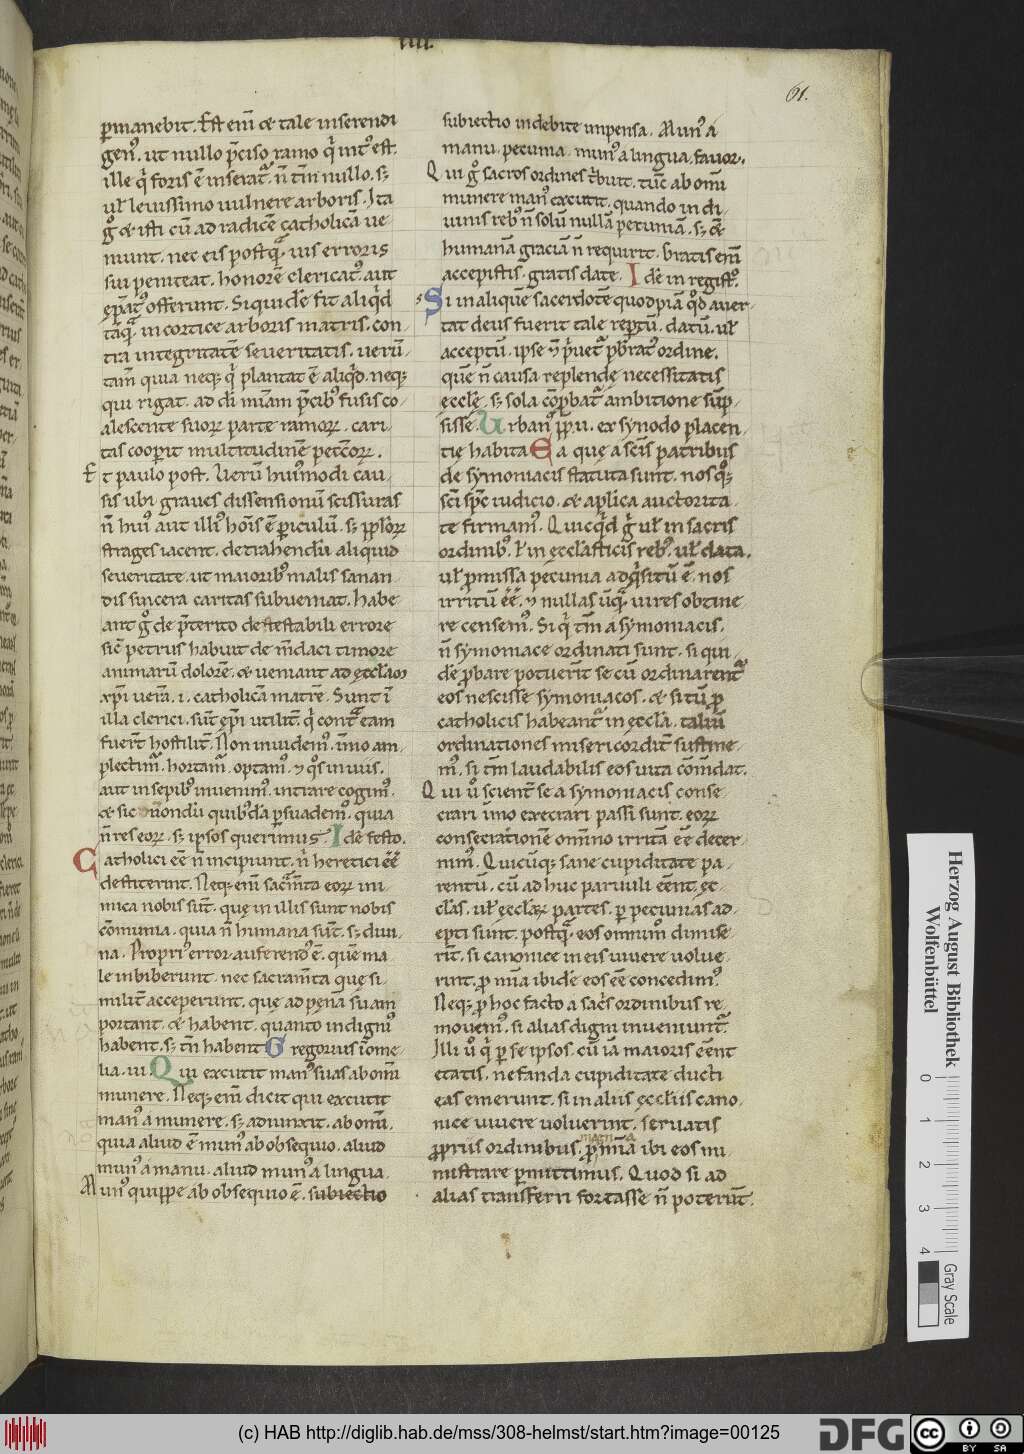 IIII.
61.
p̄manebit. Est eni̅ et tale inserendi
gen⁹. ut nullo p̄ciso ramo qͥ int⁹ est.
ille qͥ foris ē inserat᷑. n̄ tm̅ in nullo. sꝫ
ul̅ leuissimo uulnere arboris. Ita
gͦ et isti cū ad radicē catholicā ue
niunt. nec eis postqͣ. uis erroris
sui peniteat. honorē clericat⁹. aut
ep̄at⁹ offerunt. Siquidē fit aliqͥd
tāqͣ. in cortice arboris matris. con
tra integritatē seueritatis. uerū
tam̄ quia neqꝫ qͥ plantat ē aliqͥd. neqꝫ
qui rigat. ad di̅ mīam p̄cibꝰ fusis co
alescente suoꝝ parte ramoꝝ. cari
tas cooperit multitudinē pecc̄oꝝ.
Et paulo post. Verū hui⁹modi cau
sis ubi graues dissensionū scissuras
n̄ hui⁹ aut illi⁹ hoīs ē periculū. sꝫ ppl̅oꝝ
strages iacent. detrahendū aliquid
seueritate. ut maioribꝰ malis sanan
dis sincera caritas subueniat. Habe
ant gͦ de p̄terito detestabili errore
sic̄ petrus habuit de m̄daci timore
animarū dolorē. et ueniant ad ęccl̅am
xp̅i uerā. i. catholicā matrē. Sunt ī
illa clerici. sūt ep̅i utilit̄. qͥ contͣ eam
fuert̄ hostilit̄. Non inuidem⁹. immo am
plectim᷑. hortam᷑. optam⁹. ⁊ qͦs in uiis.
aut in sepibꝰ inuenim⁹. intrare cogim⁹.
et sic nondū quibꝰdā p̄suadem⁹. quia
n̄ res eoꝝ. sꝫ ipsos querimus. Idē festo.
Catholici eē n̄ incipiunt. nͥ heretici eē
destiterint. Neqꝫ eni̅ sacͣm̄ta eoꝝ ini
mica nobis sūt. quę in illis sunt nobis
cōmunia. quia n̄ humana sūt. sꝫ diui
na. Propri⁹ error auferend⁹ ē. quē ma
le inbiberunt. nec sacram̄ta que si
milit̄ acceperunt. que ad pęnā suam
portant. et habent. quanto indigni⁹
habent. sꝫ tn̄ habent Gregorius i̅ ome
lia. iii. Qui excutit man⁹ suas ab om̅i
munere. Neqꝫ eni̅ dicit qui excutit
man⁹ a munere. sꝫ adiunxit. ab om̅i.
quia aliud ē mun⁹ ab obsequio. aliud
mun⁹ a manu. aliud mun⁹ a lingua.
Mun⁹ quippe ab obsequio ē. subiectio
subiectio indebite inpensa. Mun⁹ a
manu. pecunia. mun⁹ a lingua. fauor.
Qui gͦ sacros ordines tͥbuit. tūc ab om̅i
munere man⁹ excutit. quando in di
uinis rebꝰ n̄ solū nullā pecuniā. sꝫ etiā
humanā graciā n̄ requirit. Gratis eni̅
accepistis. gratis date. Idē in registͦ.
Si in aliquē sacerdotē quodpiā qͦd auer
tat deus fuerit tale rep̄tū. datū. ul̅
acceptū. ipse ⁊ pͥuet᷑ p̄br̄at⁹ ordine.
quē n̄ causa replendę necessitatis
ęccl̅ę. sꝫ sola cōp̄bat᷑ ambitione sūp
sisse. Urban⁹ p̄p̄. ii. ex synodo placen
tię habita Ea quę a scīs patribus
de symoniacis statuta sunt. nos qͦꝫ
sc̄i sp̄c iudicio. et ap̄lica auctorita
te firmam⁹. Quicqͥd gͥ ul̅ in sacris
ordinibꝰ. ł in ęccl̅asticis rebꝰ. ul̅ data.
ul̅ p̄missa pecunia adqͥsitū ē. nos
irritū eē. ⁊ nullas ūqͣ. uires obtine
re censem⁹. Si qͥ tm̄ a symoniacis.
n̄ symoniace ordinati sunt. si qui
dē p̄bare potuerīt se cū ordinarent᷑
eos nescisse symoniacos. et si tū p̄
catholicis habeant᷑ in ęccl̅a. taliū
ordinationes misericordit̄ sustine
m⁹. si tm̄ laudabilis eos uita cōm̄dat.
Qui uͦ scient̄ se a symoniacis conse
crari ūmo execrari passi sunt. eoꝝ
consecrationē omnino irritā eē decer
nim⁹. Quicūqꝫ sane cupiditate pa
rentū. cū adhuc paruuli eēnt. ęc
cl̅as. ul̅ ęccl̅aꝝ partes. p̄ pecunias ad
epti sunt. postqͣ. eos omnium dimise
rīt. si canonice in eis uiuere uolue
runt. p̄ mīa ibidē eos eē concedim⁹.
Neqꝫ p̄ hoc facto a sac̄s ordinibus re
mouem⁹. si alias digni inueniunt᷑.
Illi uͦ qͥ p̄ se ipsos. cū iā maioris eēnt
etatis. nefanda cupiditate ducti
eas emerunt. si in aliis ęccl̅iis cano
nice uiuere uoluerint. seruatis
p̄priis ordinibus. p̄ mīa ibi eos mi
nistrare p̄mittimus. Quod si ad
alias transferri fortasse n̄ poterūt.
Herzog August Bibliothek
Wolfenbüttel
0
1
2
3
4
Gray Scale
(c) HAB http://diglib.hab.de/mss/308-helmst/start.htm?image=00125
DFG
cc
BY SA